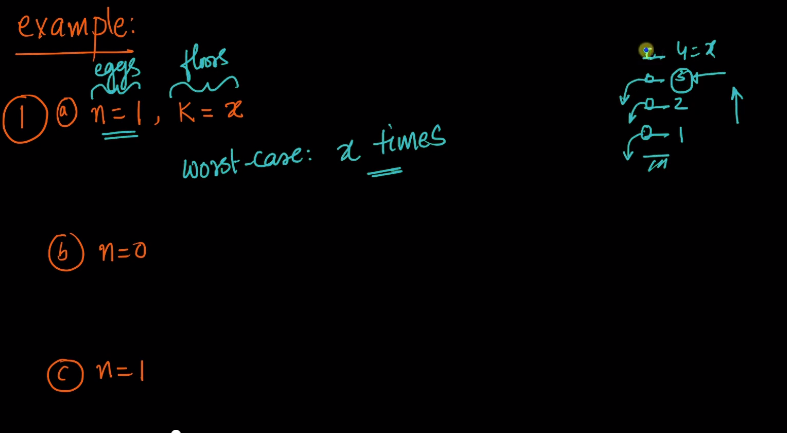 example:
eggs floors
1 a n=1, K=x
worst-case: x times
b n=0
c n=1
4=x
3
2
1